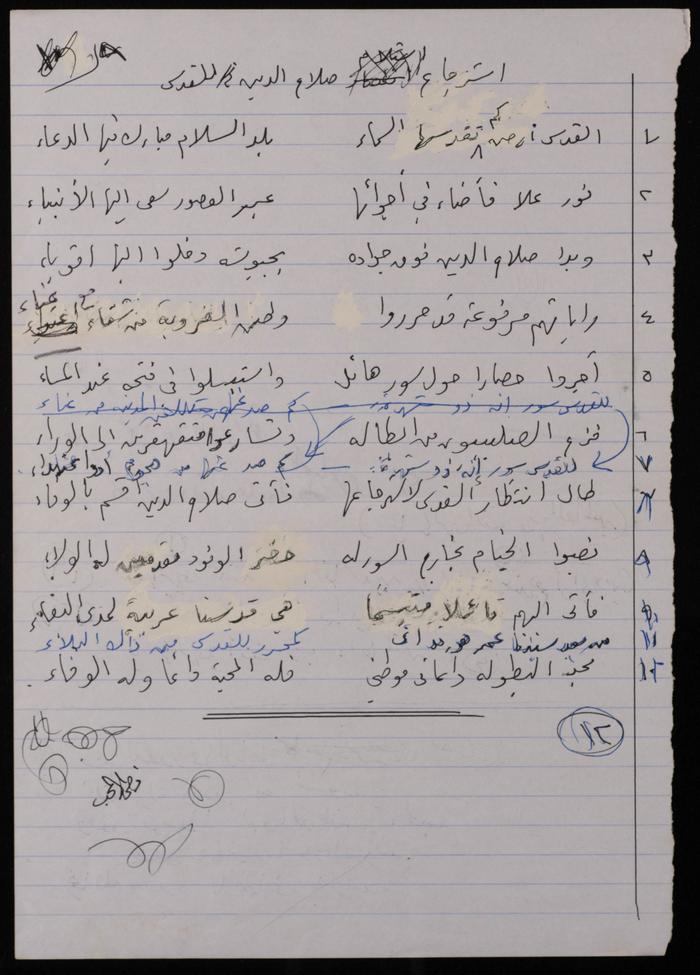 استرجاع صلاح الدين للقدس
١ القدس أرض كم تقدسها السماء بلد السلام مبارك فيها الدعاء
٢ نور علا فأضاء في أجوائها عبر العصور سعى إليها الأنبياء
٣ وبدا صلاح الدين فوق جواده دخلوا إليها أقوياء
٤ راياتهم مرفوعة قد حرروا وطن العروبة من شقاء
٥ أجروا حصارا حول سور هائل واستبسلوا في فتحه عند المساء
للقدس سور إنه ذو شهرة كم صد
٦ فزع الصليبيون من أبطاله وتسارعوا متقهقرين إلى الوراء
٧ للقدس سور إنه ذو شهرة كم صد عنها من
٨ طال انتظار القدس لاسترجاعها فأتى صلاح الدين أقسم بالوفاء
٩ نصبوا الخيام بخارج السور له حضر الوفود مقدمين له الولاء
١٠ فأتى إليهم قائلا متبسما هي قدسنا عربية لمدى البقاء
١١ لتحرر للقدس من ذاك البلاء
١٢ تحيا البطولة دائما في موطني فله المحبة دائما وله الوفاء
١٢